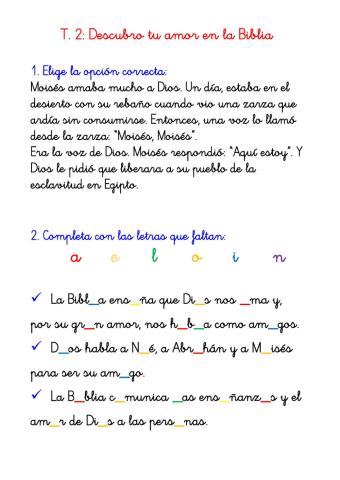 T. 2: Descubro tu amor en la Biblia
1. Elige la opción correcta:
Moisés amaba mucho a Dios. Un día, estaba en el
desierto con su rebaño cuando vio una zarza que
ardía sin consumirse. Entonces, una voz lo llamó
desde la zarza: "Moisés, Moisés".
Era la voz de Dios. Moisés respondió: "Aquí estoy". Y
Dios le pidió que liberara a su pueblo de la
esclavitud en Egipto.
2. Completa con las letras que faltan:
a e l o i n
✓ La Bibl_a ens_ña que Di_s nos _ma y,
por su gr_n amor, nos h_b_a como am_gos.
✓ D_os habla a N_é, a Abr_hán y a M_isés
para ser su am_go.
✓ La B_blia c_munica _as ens_ñanz_s y el
am_r de Di_s a las pers_nas.